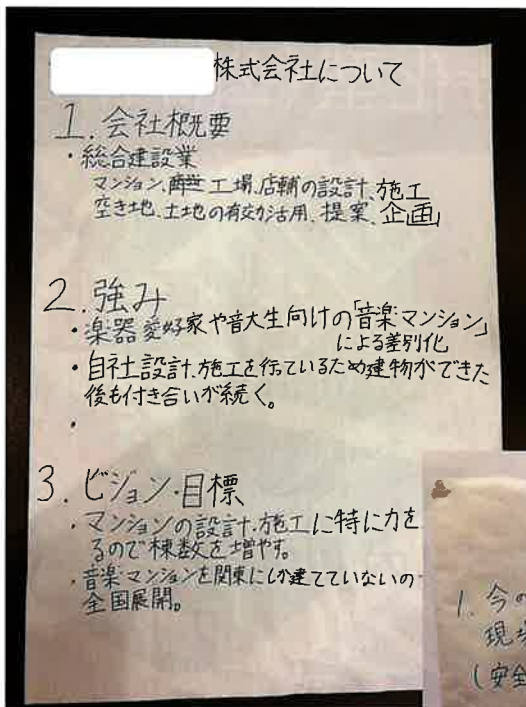 株式会社について
1. 会社概要
・総合建設業
マンション、工場、店舗の設計、施工
空き地、土地の有効活用、提案、企画
2. 強み
・楽器愛好家や音大生向けの「音楽マンション」
による差別化
・自社設計、施工を行っているため建物ができた
後も付き合いが続く。
・
3. ビジョン・目標
・マンションの設計・施工に特に力を
るので棟数を増やす。
・音楽マンションを関東にしか建てていないの
全国展開。
1. 今の
現場
(安全